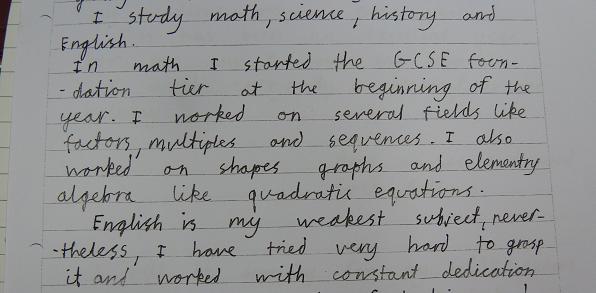 I study math, science, history and
English.
In math I started the GCSE foun-
-dation tier at the beginning of the
year. I worked on several fields like
factors, multiples and sequences. I also
worked on shapes graphs and elementry
algebra like quadratic equations.
English is my weakest subject, never-
-theless, I have tried very hard to grasp
it and worked with constant dedication